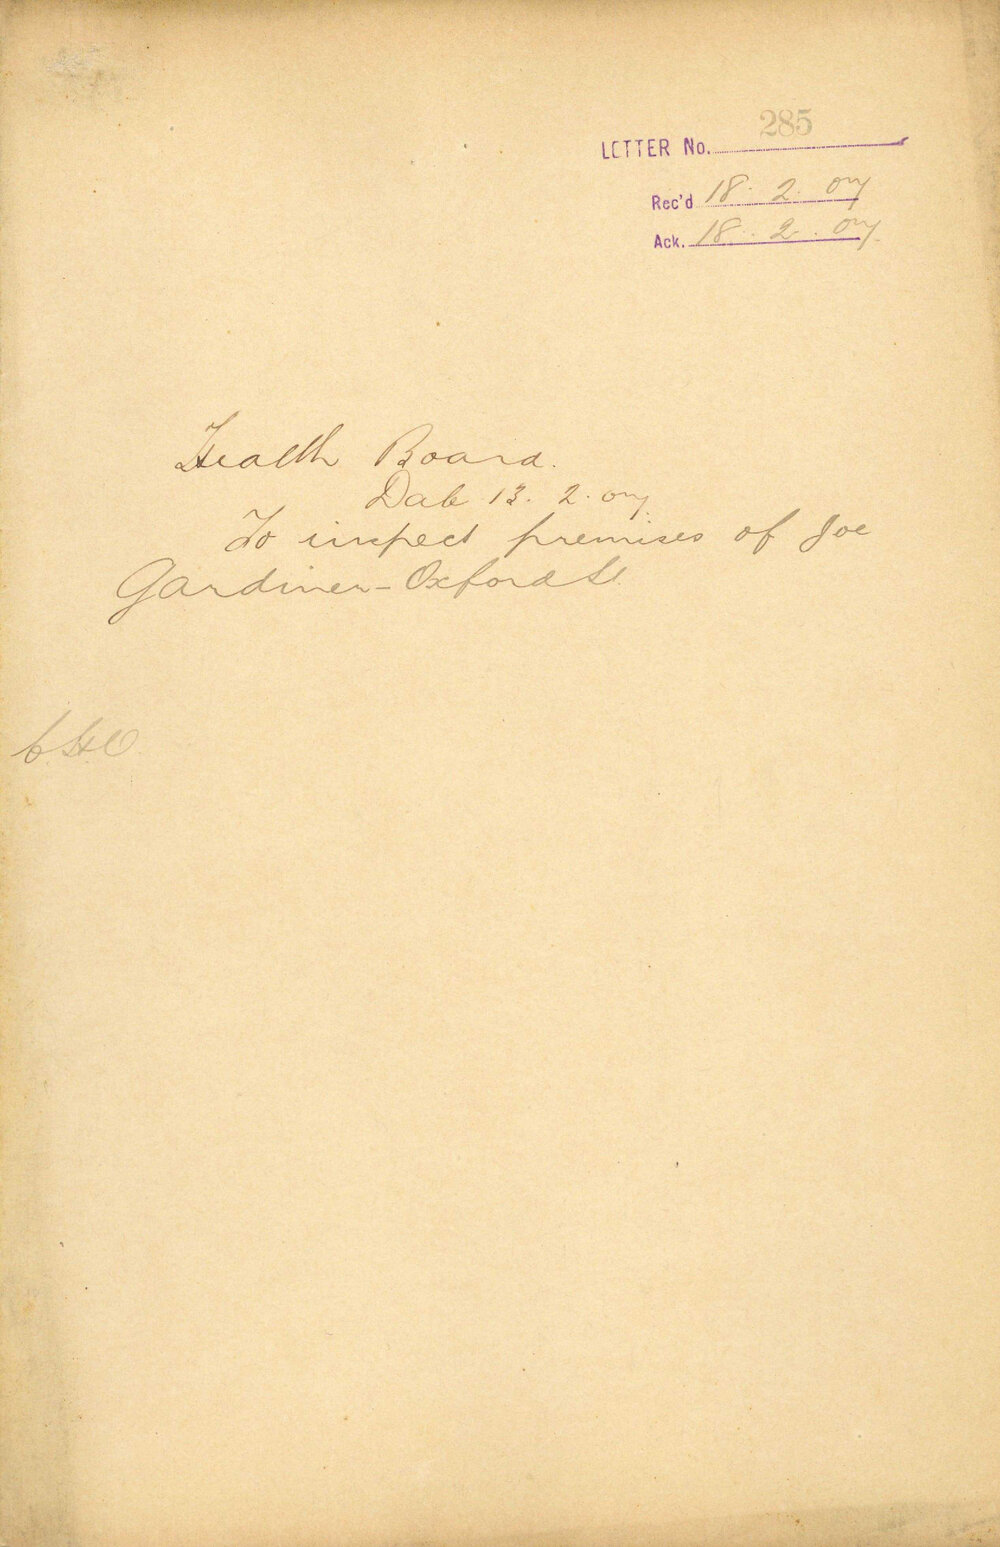 LETTER No. 285
Rec'd 18. 2. 07
Ack. 18. 2. 07.
Health Board.
Date 13. 2. 07.
To inspect premises of Joe
Gardiner - Oxford St.